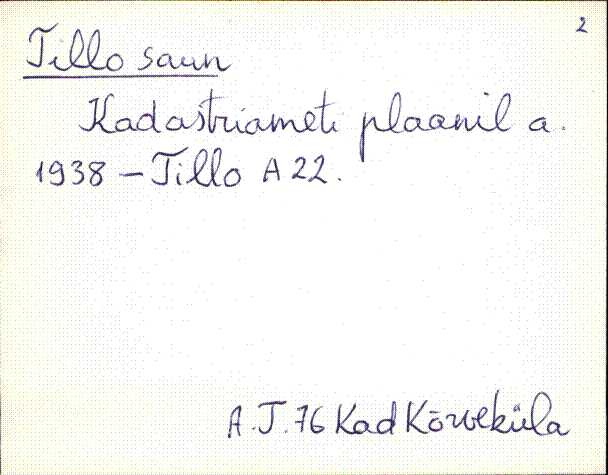 2
Tillo saun
Kadastriameti plaanil a.
1938 – Tillo A 22.
A.J. 76 Kad Kõrveküla